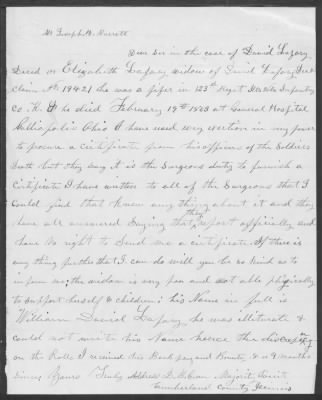 Mr Joseph H. Barrett
Dear Sir in the case of David Lafary
Decd or Elizabeth Lafary widow of David Lafary Decd
Claim No 19421 he was a fifer in 123rd Regt Illinois Infantry
Co. K. & he died February 19th 1863 at General Hospital
Gallipolis Ohio I have used evry exertion in my power
to procure a certificate from his officers of the Soldiers
Death but they say it is the Surgeons duty to furnish a
Certificate I have written to all of the Surgeons that I
could find that knew any thing about it and they
have all answered Saying that they report officially and
have no right to Send me a certificate. If there is
any thing further that I can do will you be so kind as to
inform me; the widow is very poor and not able physically
to support herself & children; his Name in full is
William David Lafary he was illiterate &
could not write his Name hence the discrepency
on the Rolls I received his Back pay and Bounty, 8 or 9 months
since Yours Truly Address D. B. Green Majority Point
Cumberland County Illinois